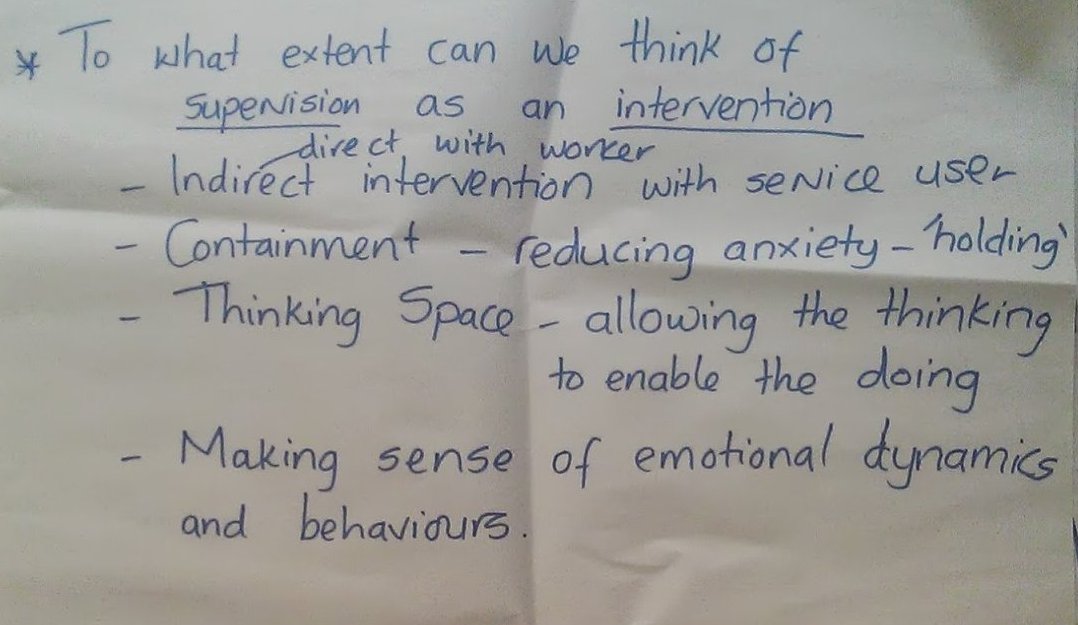 * To what extent can we think of
supervision as an intervention
direct with worker
- Indirect intervention with service user
- Containment - reducing anxiety - 'holding'
- Thinking Space - allowing the thinking
to enable the doing
- Making sense of emotional dynamics
and behaviours.